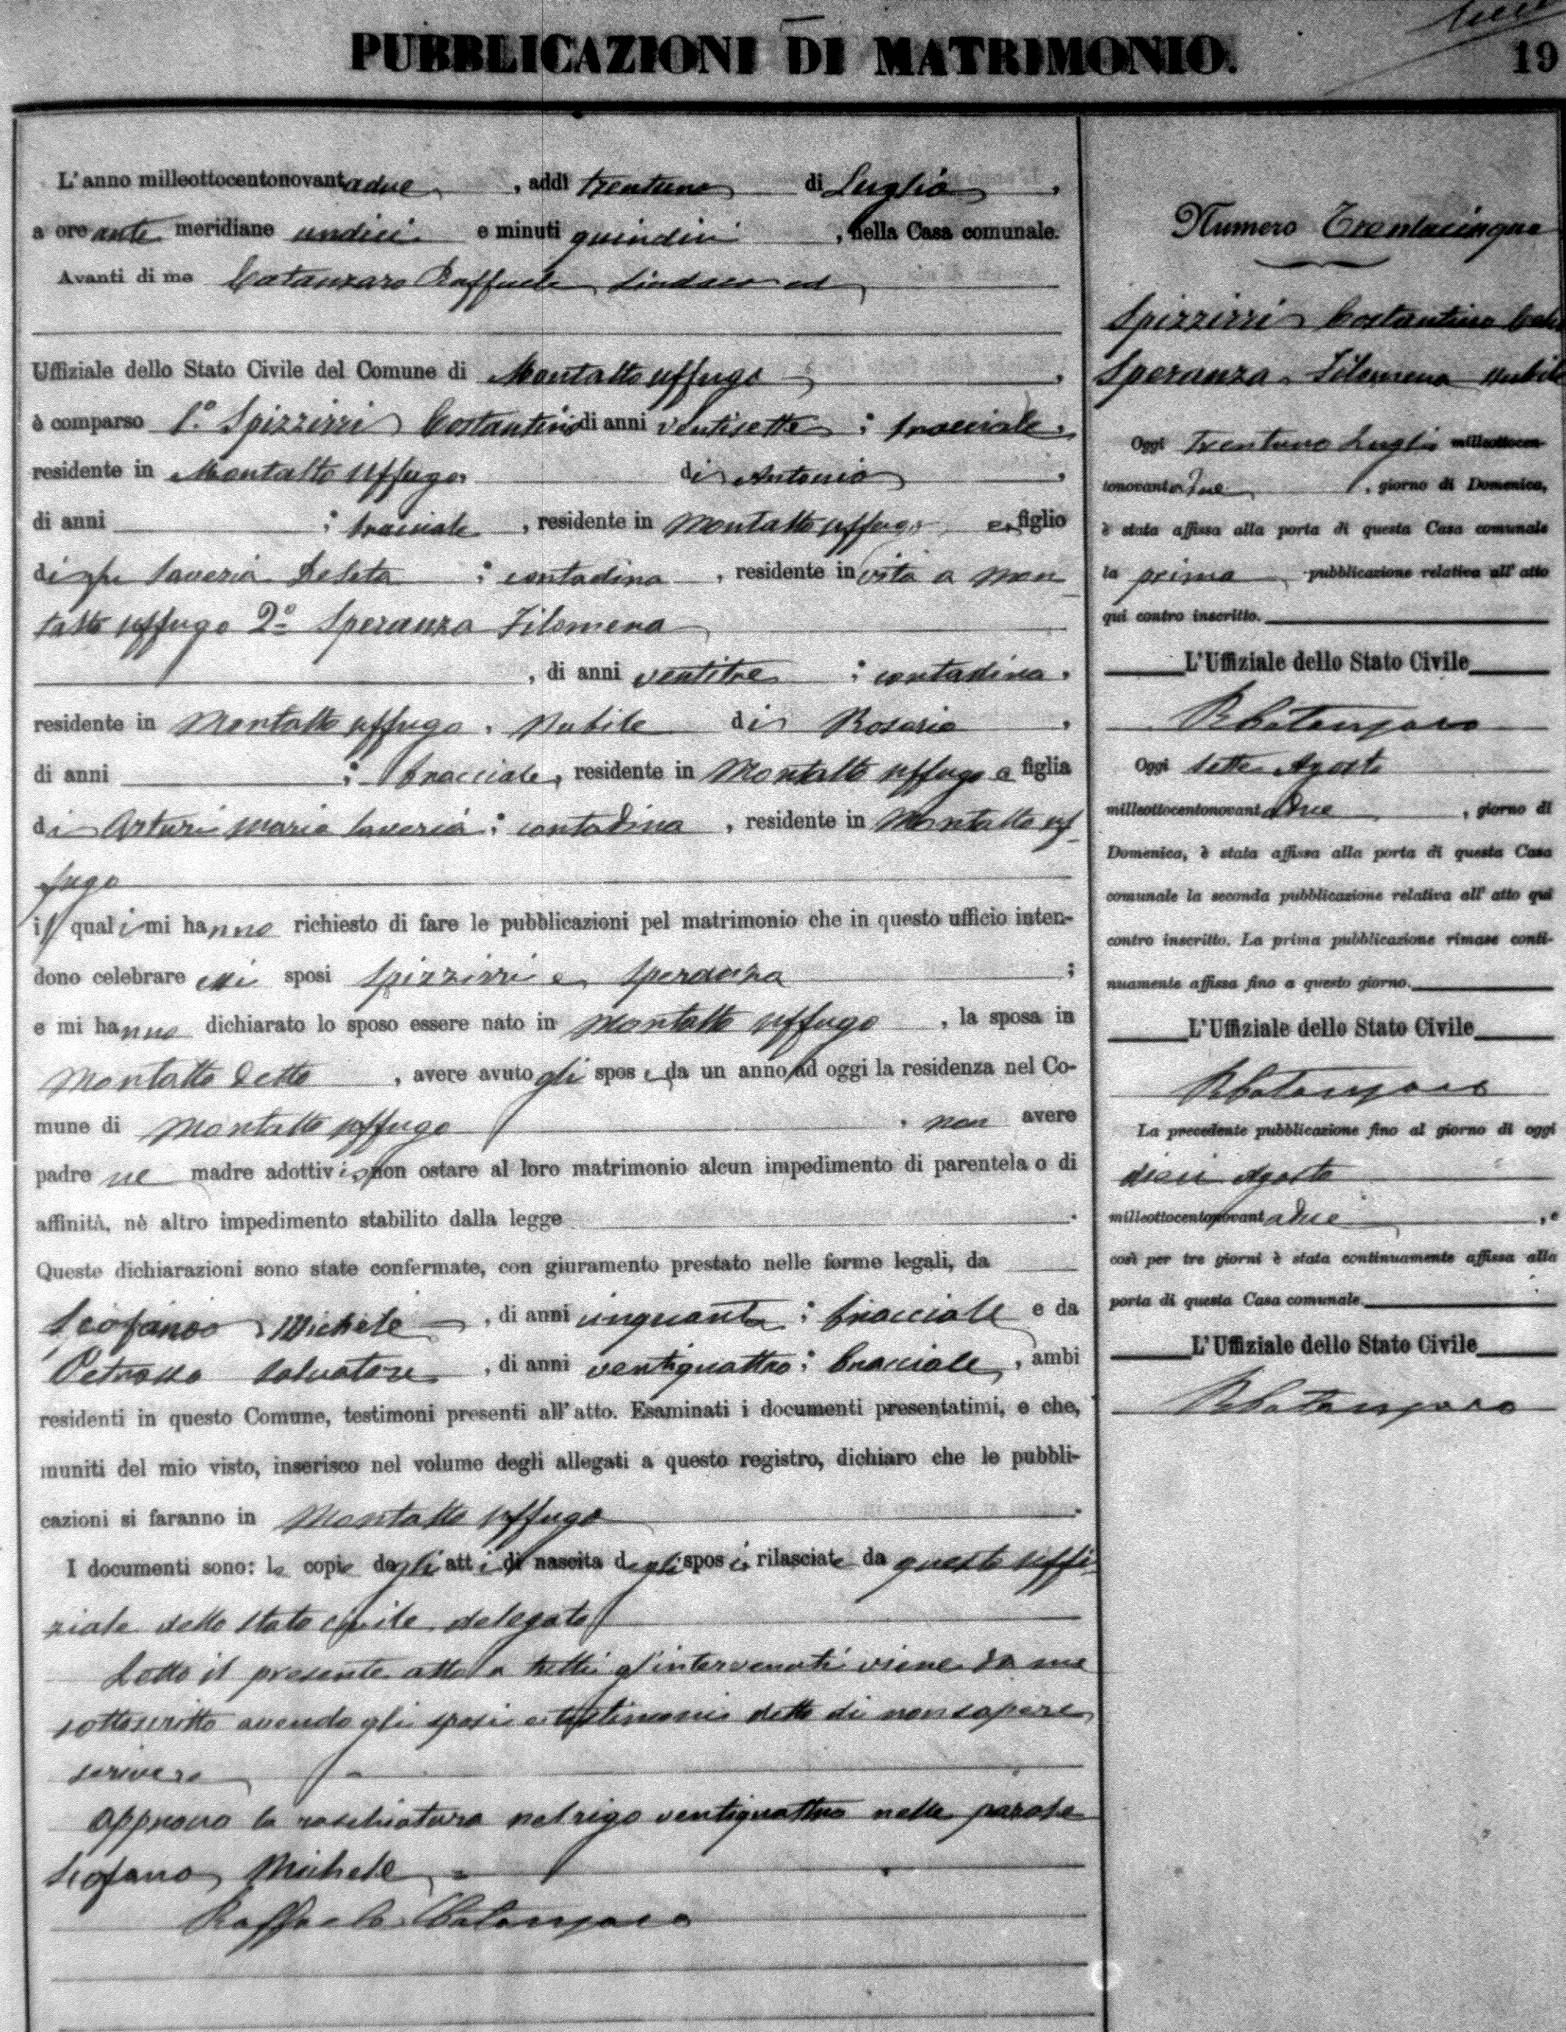 PUBBLICAZIONI DI MATRIMONIO.
19
L'anno milleottocentonovantadue, addì trentuno di Luglio,
a ore ante meridiane undici e minuti quindici, nella Casa comunale.
Avanti di me Catanzaro Raffaele Sindaco ed
Uffiziale dello Stato Civile del Comune di Montalto Uffugo,
è comparso 1.º Spizzirri Costantino di anni ventisette; bracciale,
residente in Montalto Uffugo, di Antonio,
di anni ; bracciale, residente in Montalto Uffugo, e figlio
di fu Saveria DeSeta; contadina, residente in vita a Mon
talto Uffugo 2º Speranza Filomena
, di anni ventitre; contadina,
residente in Montalto Uffugo. Nubile di Rosario,
di anni ; bracciale, residente in Montalto Uffugo e figlia
di Arturi Maria Saveria; contadina, residente in Montalto Uf
fugo
i quali mi hanno richiesto di fare le pubblicazioni pel matrimonio che in questo ufficio inten-
dono celebrare essi sposi Spizzirri e Speranza;
e mi hanno dichiarato lo sposo essere nato in Montalto Uffugo, la sposa in
Montalto detto, avere avuto gli sposi da un anno ad oggi la residenza nel Co-
mune di Montalto Uffugo. non avere
padre ne madre adottivi, non ostare al loro matrimonio alcun impedimento di parentela o di
affinità, nè altro impedimento stabilito dalla legge.
Queste dichiarazioni sono state confermate, con giuramento prestato nelle forme legali, da
Scofano Michele, di anni cinquanta; bracciale e da
Petrasso Salvatore, di anni ventiquattro; bracciale, ambi
residenti in questo Comune, testimoni presenti all'atto. Esaminati i documenti presentatimi, e che,
muniti del mio visto, inserisco nel volume degli allegati a questo registro, dichiaro che le pubbli-
cazioni si faranno in Montalto Uffugo.
I documenti sono: le copie degli atti di nascita degli sposi, rilasciate da questo Uffi
ziale dello stato civile delegato
Letto il presente atto a tutti gl'intervenuti viene da me
sottoscritto avendo gli sposi e testimoni detto di non sapere
scrivere
Approvo la raschiatura nel rigo ventiquattro nelle parole
Scofano Michele =
Raffaele Catanzaro
Numero Trentacinque
Spizzirri Costantino
Speranza Filomena nubile
Oggi trentuno Luglio milleottocen-
tonovantadue, giorno di Domenica,
è stata affissa alla porta di questa Casa comunale
la prima pubblicazione relativa all'atto
qui contro inscritto.
L'Uffiziale dello Stato Civile
R Catanzaro
Oggi sette Agosto
milleottocentonovantadue, giorno di
Domenica, è stata affissa alla porta di questa Casa
comunale la seconda pubblicazione relativa all'atto qui
contro inscritto. La prima pubblicazione rimase conti-
nuamente affissa fino a questo giorno.
L'Uffiziale dello Stato Civile
R Catanzaro
La precedente pubblicazione fino al giorno di oggi
dieci Agosto
milleottocentonovantadue, e
così per tre giorni è stata continuamente affissa alla
porta di questa Casa comunale.
L'Uffiziale dello Stato Civile
R Catanzaro